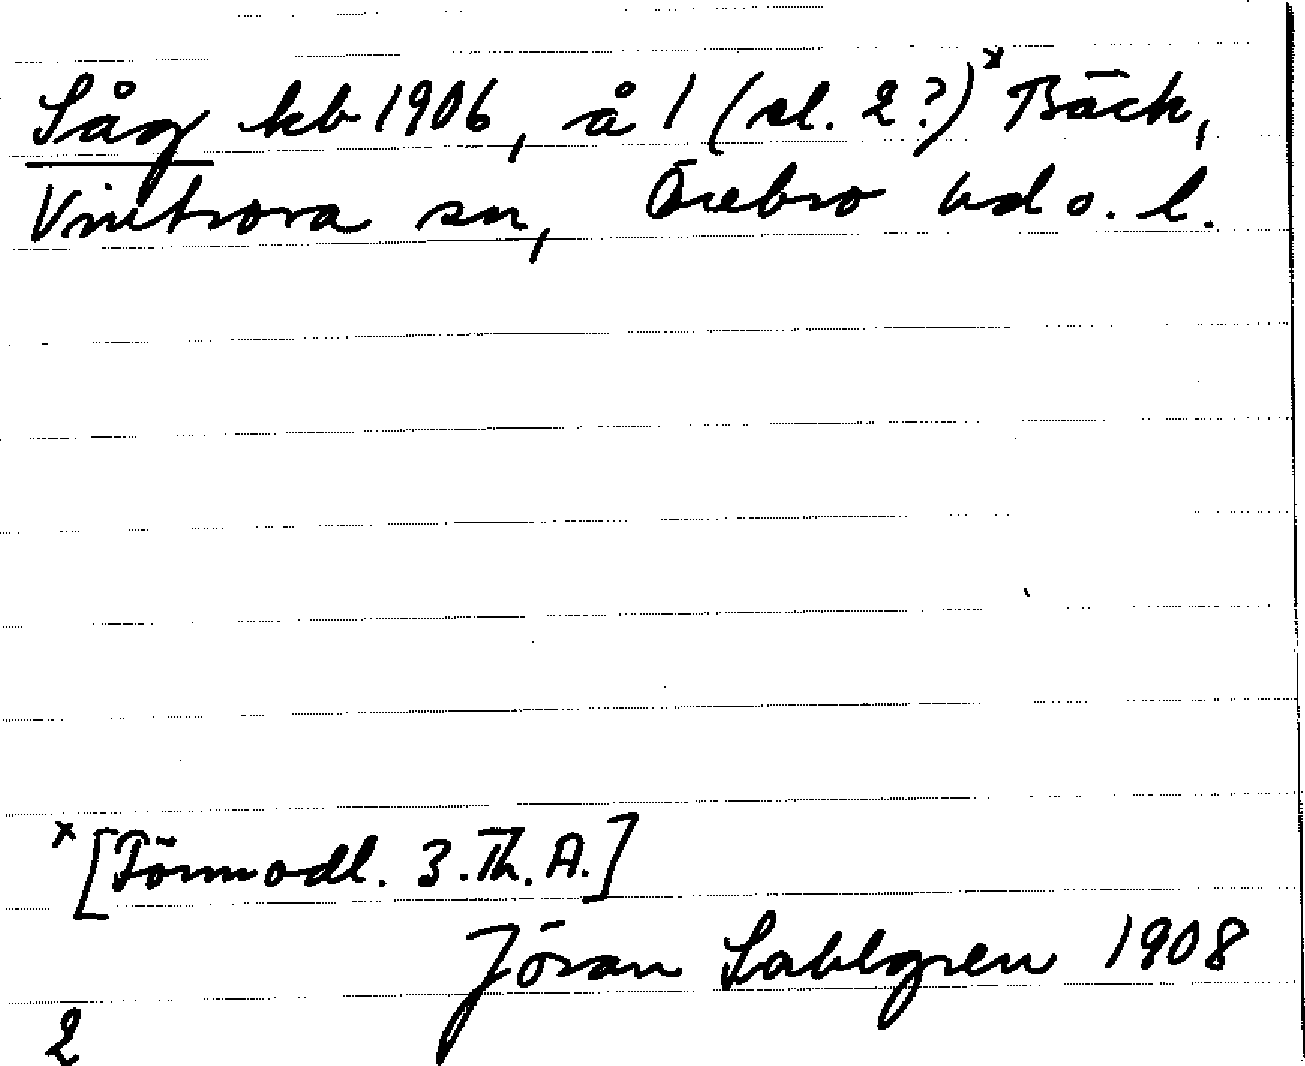 Såg kb 1906, å 1 (el. 2?)ˣ Bäck,
Vintrosa sn, Örebro hd o. l.
ˣ [Förmodl. 3. Th. A.]
Jöran Sahlgren 1908
2